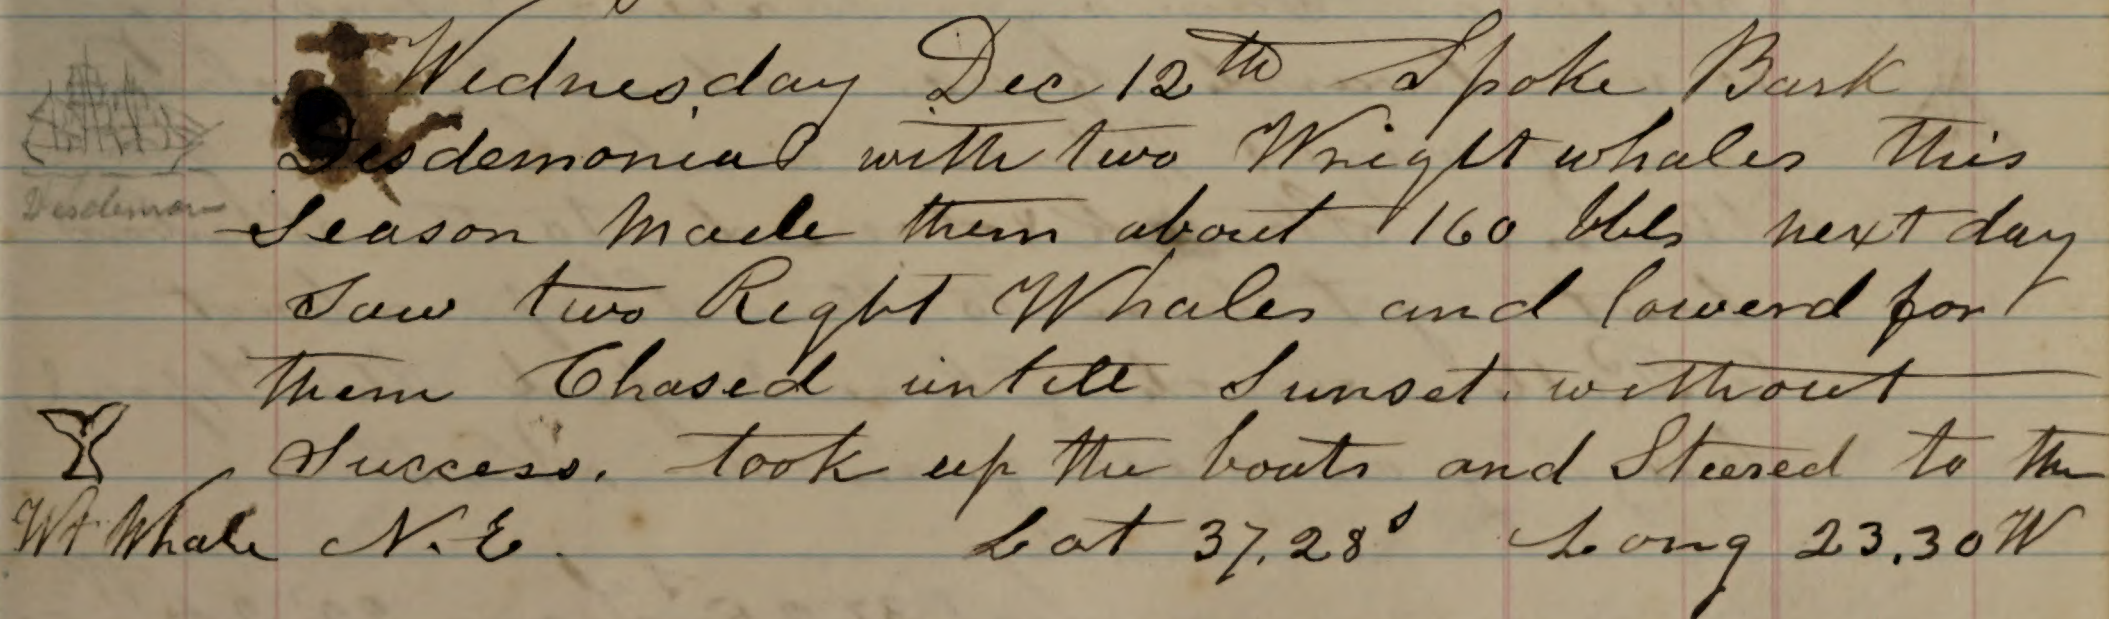 Wednesday Dec 12th Spoke Bark
Desdemonia with two Wright whales this
Desdemona
Season Made them about 160 bbls next day
Saw two Right Whales and lowerd for
them Chased untill Sunset. without
Success. took up the boats and Steered to the
Wt Whale N.E. Lat 37.28s Long 23.30W